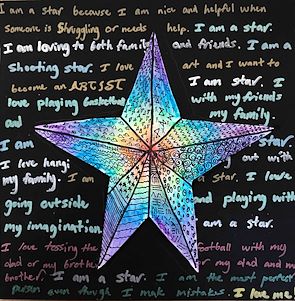 I am a star because I am nice and helpful when
someone is struggling or needs help. I am a star.
I am loving to both family and friends. I am a
Shooting star. I love art and I want to
become an ARTIST I am star. I
love playing basketball with my friends
and my family.
I am star.
I love hangi out with
my family. I am a star. I love
going outside and playing with
my imagination. am a star.
I love tossing the football with my
dad or my brother or my dad and my
brother. I am a star. I am the most perfect
person even though I make mistakes. I love me!